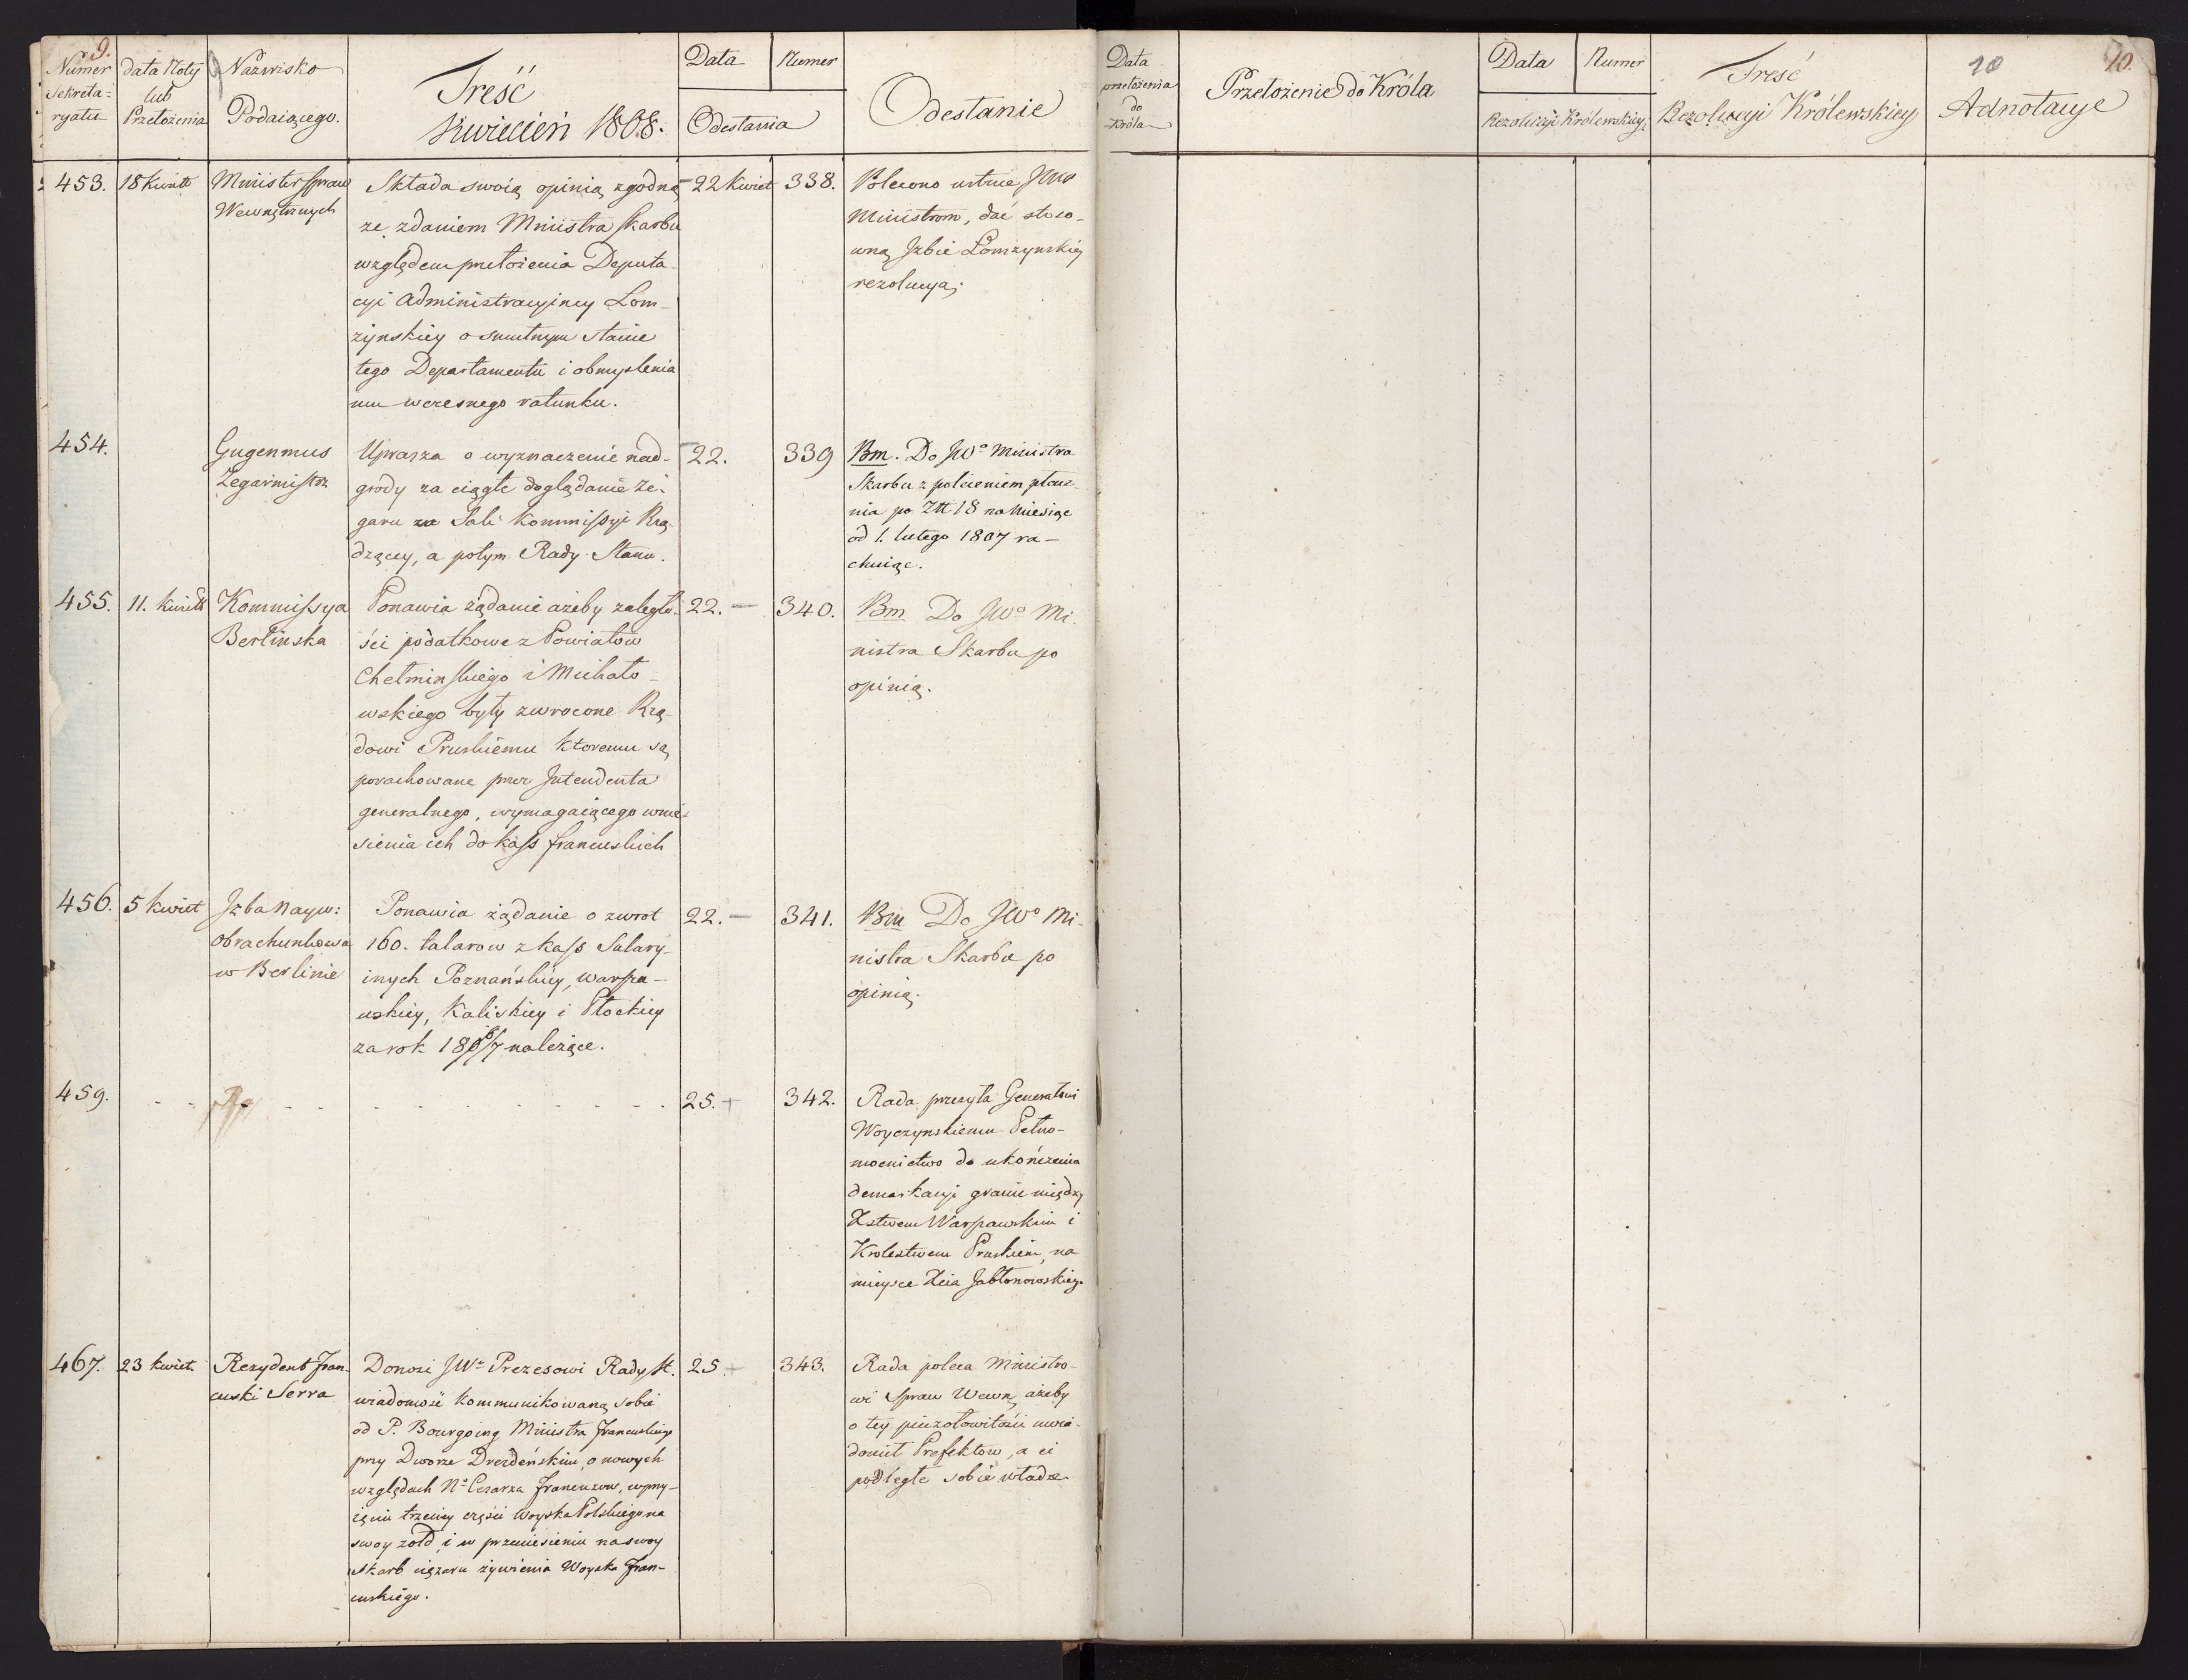 9.
Numer
Sekreta=
ryatu
data Noty
lub
Przełożenia
Nazwisko
Podaiącego.
Treść
Kwiecień 1808.
Data
Numer
Odesłania
Odesłanie
Data
przełożenia
do
Króla
Przełożenie do Króla
Data
Numer
Rezolucyi Królewskiey
Treść
Rezolucyi Królewskiey
10
10.
Adnotacye
453.
18 Kwiet
Minister Spraw
Wewnętrznych
Składa swoią opinią zgodną
ze zdaniem Ministra Skarbu
względem przełożenia Deputa-
cyi Administracyiney Łom-
żynskiey o smutnym stanie
tego Departamentu i obmyślenia
mu wczesnego ratunku.
22 Kwiet
338.
Polecono ustnie JWW
Ministrom, dać stoso-
wną Jzbie Łomzynskiéy
rezolucyą.
454.
Gugenmus
Zegarmistrz
Uprasza o wyznaczenie nad-
grody za ciągłe doglądanie ze-
garu na Sali Kommissyi Rzą-
dzącey, a potym Rady Stanu.
22.
339
Bm. Do JWo Ministra
Skarbu z poleceniem płace-
nia po Złt 18 na Miesiąc
od 1. lutego 1807 ra-
chuiąc.
455.
11. Kwiet
Kommissya
Berlinska
Ponawia żądanie ażeby zaległo-
ści podatkowe z Powiatow
Chełminskiego i Michało-
wskiego były zwrocone Rzą-
dowi Pruskiemu ktoremu są
porachowane przez Jntendenta
generalnego, wymagaiącego wnie-
sienia ich do kass francuskich
22. –
340.
Bm. Do JWo Mi-
nistra Skarbu po
opinią.
456.
5 Kwiet
Jzba Nayw:
Obrachunkowa
w Berlinie
Ponawia żądanie o zwrot
160. talarow z kass Salary-
inych Poznańskiéy, Warsza-
wskiey, Kaliskiey i Płockiey
za rok 1806/7 należące.
22. –
341.
Bm Do JWo Mi-
nistra Skarbu po
opinią.
459.
25. +
342.
Rada przesyła Generałowi
Woyczynskiemu Pełno-
mocnictwo do ukończenia
demarkacyi granic między
Xstwem Warszawskim i
Krolestwem Pruskiem, na
mieysce Xcia Jabłonowskiego
467.
23 kwiet
Rezydent Fran-
cuski Serra
Donosi JWu Prezesowi Rady St.
wiadomość kommunikowaną sobie
od P. Bourgoing Ministra Francuskiego
przy Dworze Drezdeńskim, o nowych
względach No Cesarza Francuzow, w przy-
ięciu trzeciey części Woyska Polskiego na
swoy żołd, i w przeniesieniu na swoy
Skarb ciężaru żywienia Woyska Fran-
cuskiego.
25 +
343.
Rada poleca Ministro-
wi Spraw Wewn, ażeby
o tey pieczołowitości uwia-
domił Prefektow, a ci
podległe sobie władze